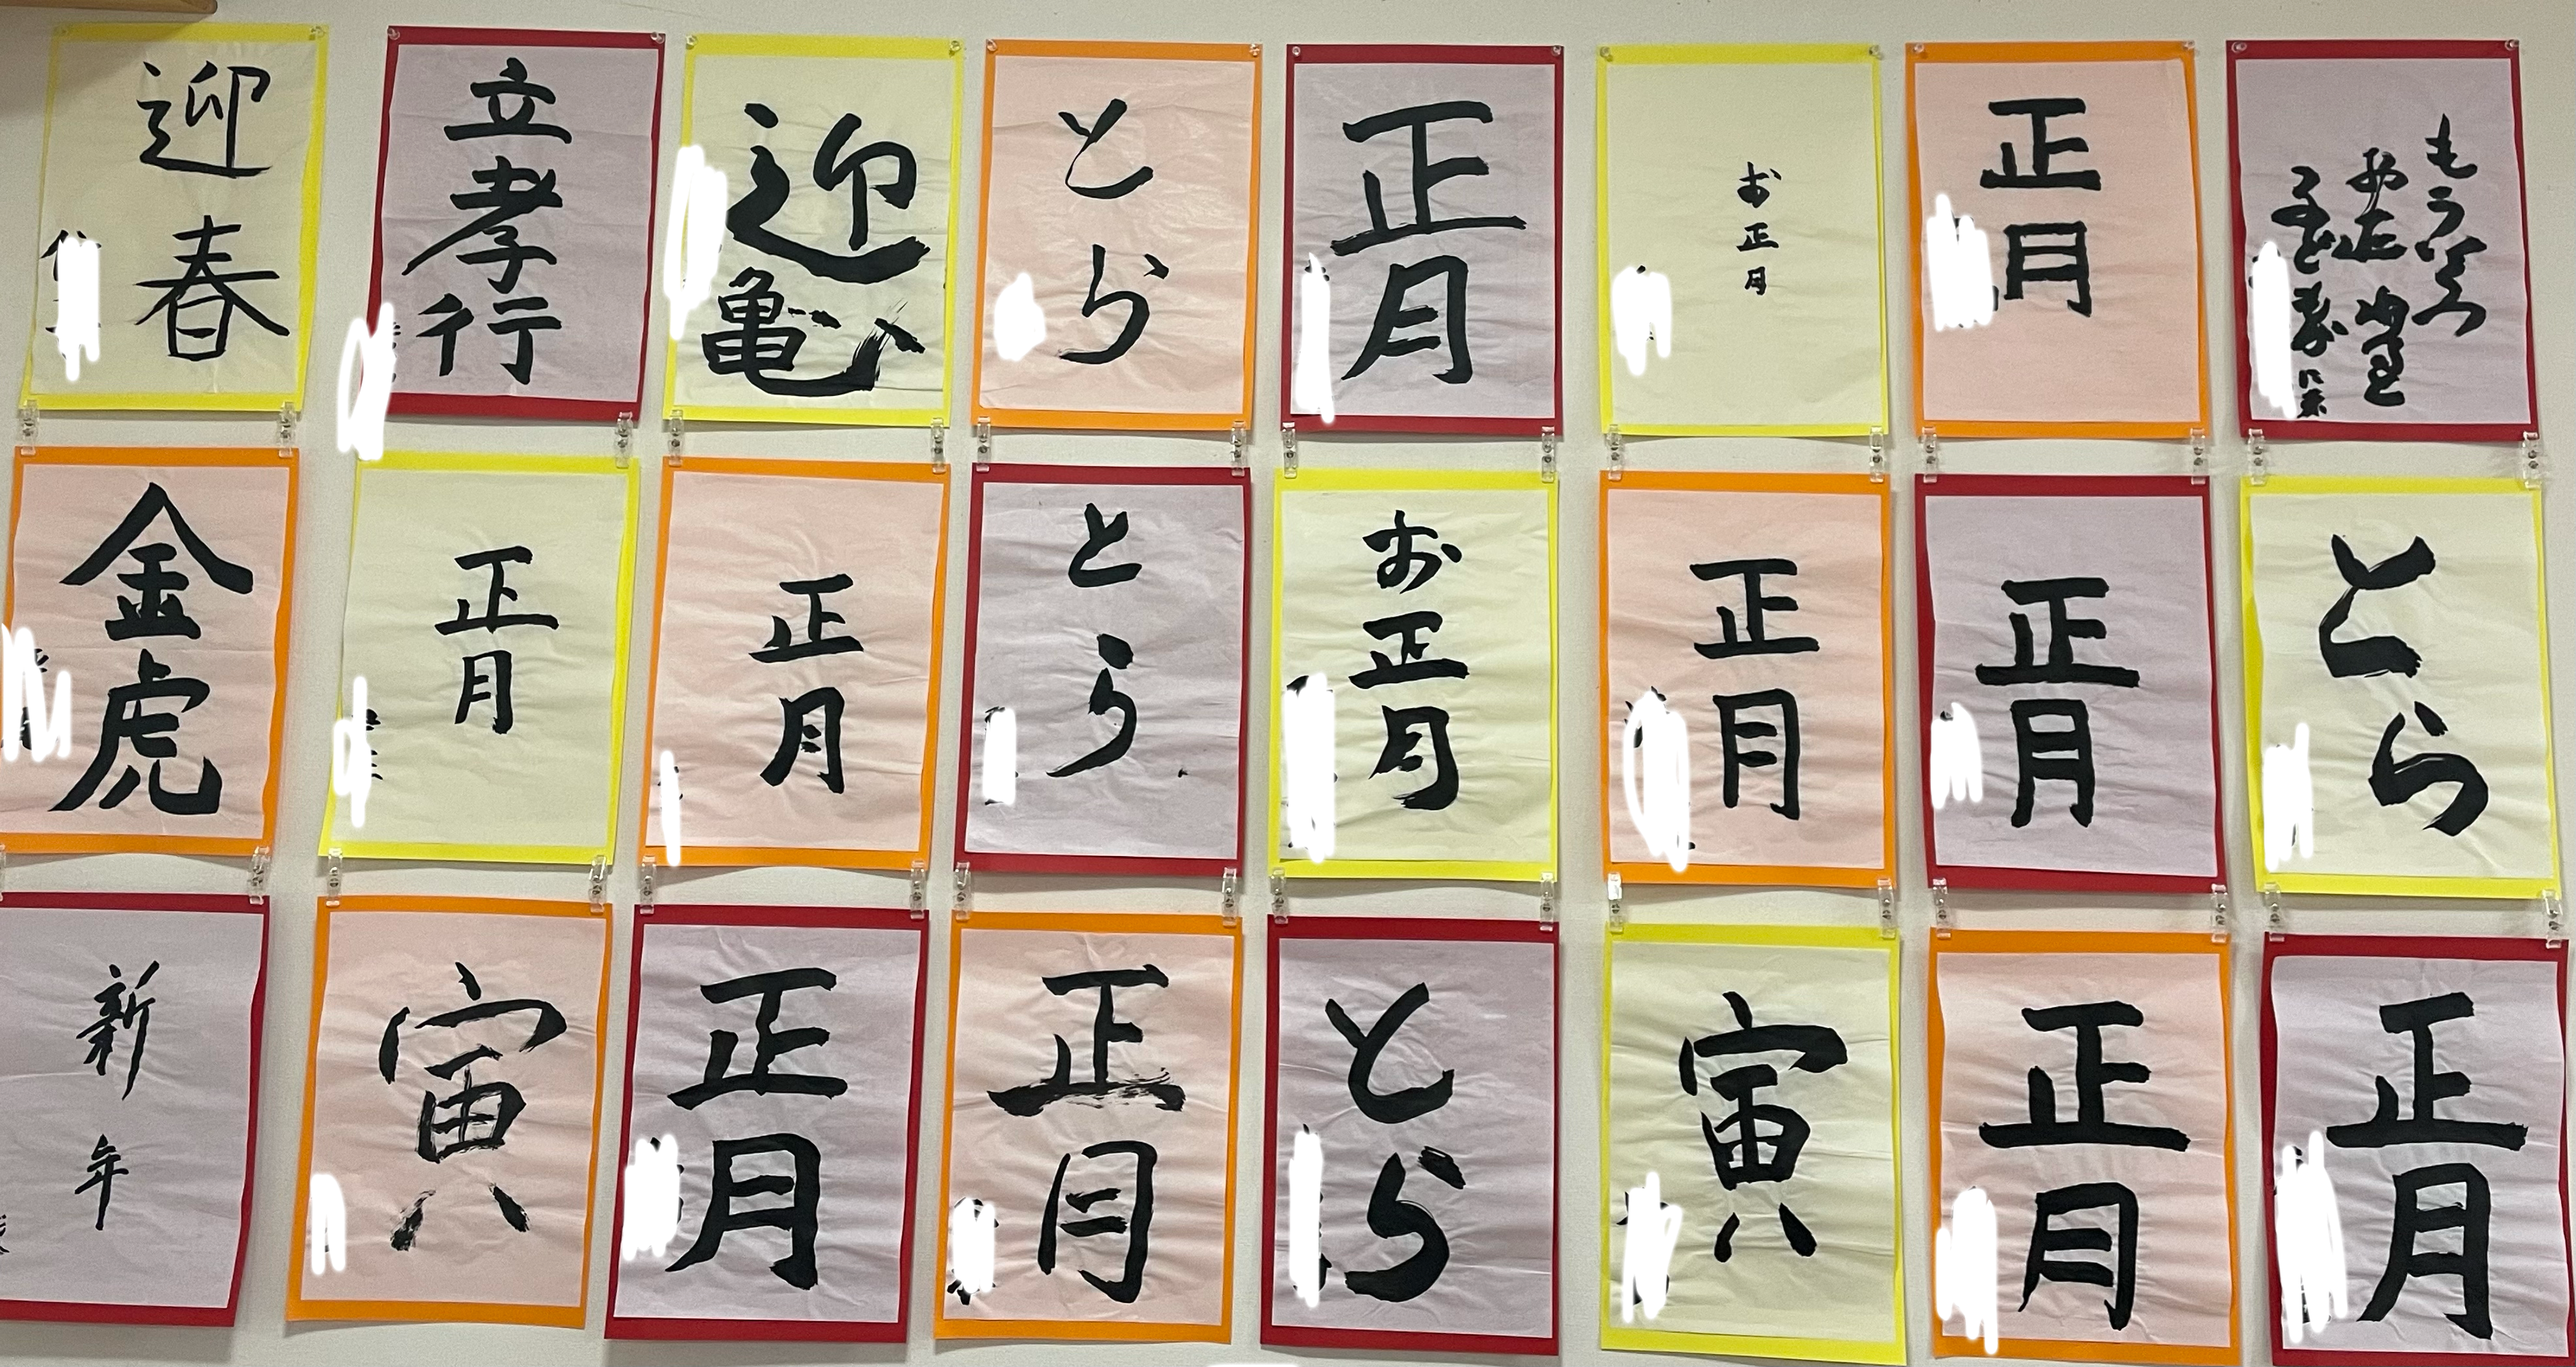 迎春
立孝行
迎亀
とら
正月
お正月
正月
もういくつ
金虎
正月
正月
とら
お正月
正月
正月
とら
新年
寅
正月
正月
とら
寅
正月
正月